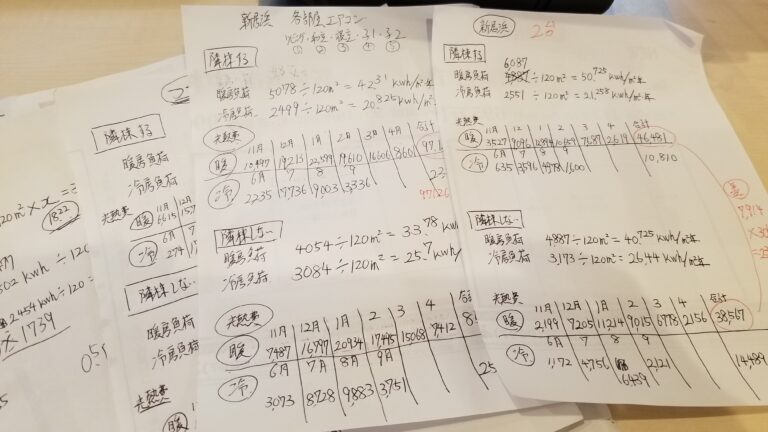 新居浜 各部屋エアコン
リビング・和室・寝室・子1・子2
① ② ③ ④ ⑤
隣棟する
暖房負荷 5078÷120m²=42.31 kwh/m²年
冷房負荷 2499÷120m²=20.825 kwh/m²年
光熱費
11月 12月 1月 2月 3月 4月 合計
暖 10497 19213 22,599 19610 16606 8601
6月 7 8 9
冷 2235 7736 9003 3336
隣棟しない
暖房負荷 4054÷120m²=33.78 kwh
冷房負荷 3084÷120m²=25.7 kwh/
光熱費
11月 12月 1月 2 3 4 合計
暖 7487 16797 20934 17445 15068 7412
6月 7月 8月 9月
冷 3,073 8,728 9,883 3,751
新居浜
隣棟する
6087
暖房負荷 4887÷120m²=50.725 kwh/m²年
冷房負荷 2551÷120m²=21.258 kwh/m²年
光熱費
11月 12月 1 2 3 4 合計
暖 3527 9096 7687 2619 46,481
6月 7 8 9
冷 635 3596 4978 1600 10,810
差
7,914
隣棟しない
暖房負荷 4887÷120m²=40.725 kwh/m²年
冷房負荷 3,173÷120m²=26.44 kwh/m²年
光熱費
11月 12月 1月 2 3 4 合計
暖 2,199 7205 11214 9015 6778 2156 38,567
6月 7 8 9
冷 1,172 4,756 6439 2,121 14,489
隣棟する
暖房負荷
冷房負荷
光熱費 11月 12月
暖 6615
6月
冷 274
隣棟しない
暖房負荷
冷房負荷
光熱費
20m²×x=
1822
502 kwh÷120
2454 kwh÷120=
×1739